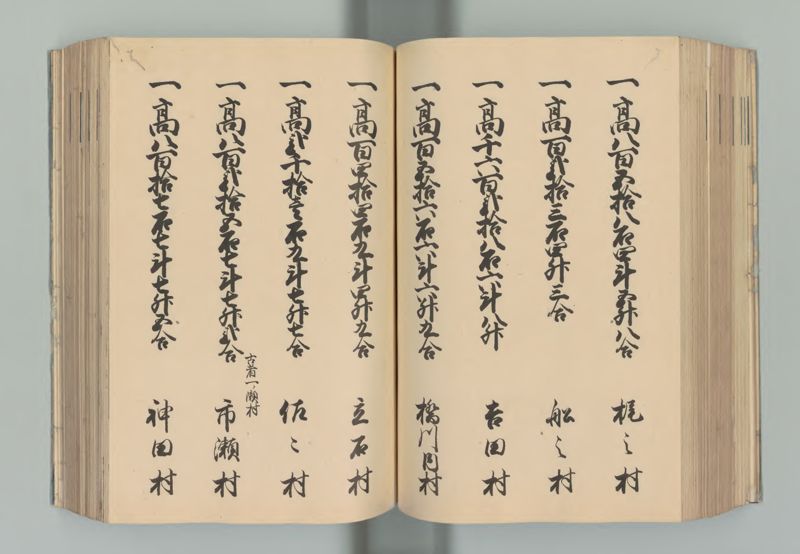 一高八百五拾八石四斗五升八合 梶之村
一高百弐拾三石四升三合 船之村
一高千六百弐拾八石六斗八升 吉田村
一高百五拾六石六斗六升九合 橋川内村
一高百四拾四石九斗四升九合 立石村
一高弐千拾壱石九斗七升七合 佐々村
古者一ノ瀬村
一高八百弐拾五石七斗七升弐合 市瀬村
一高八百拾七石七斗七升五合 神田村